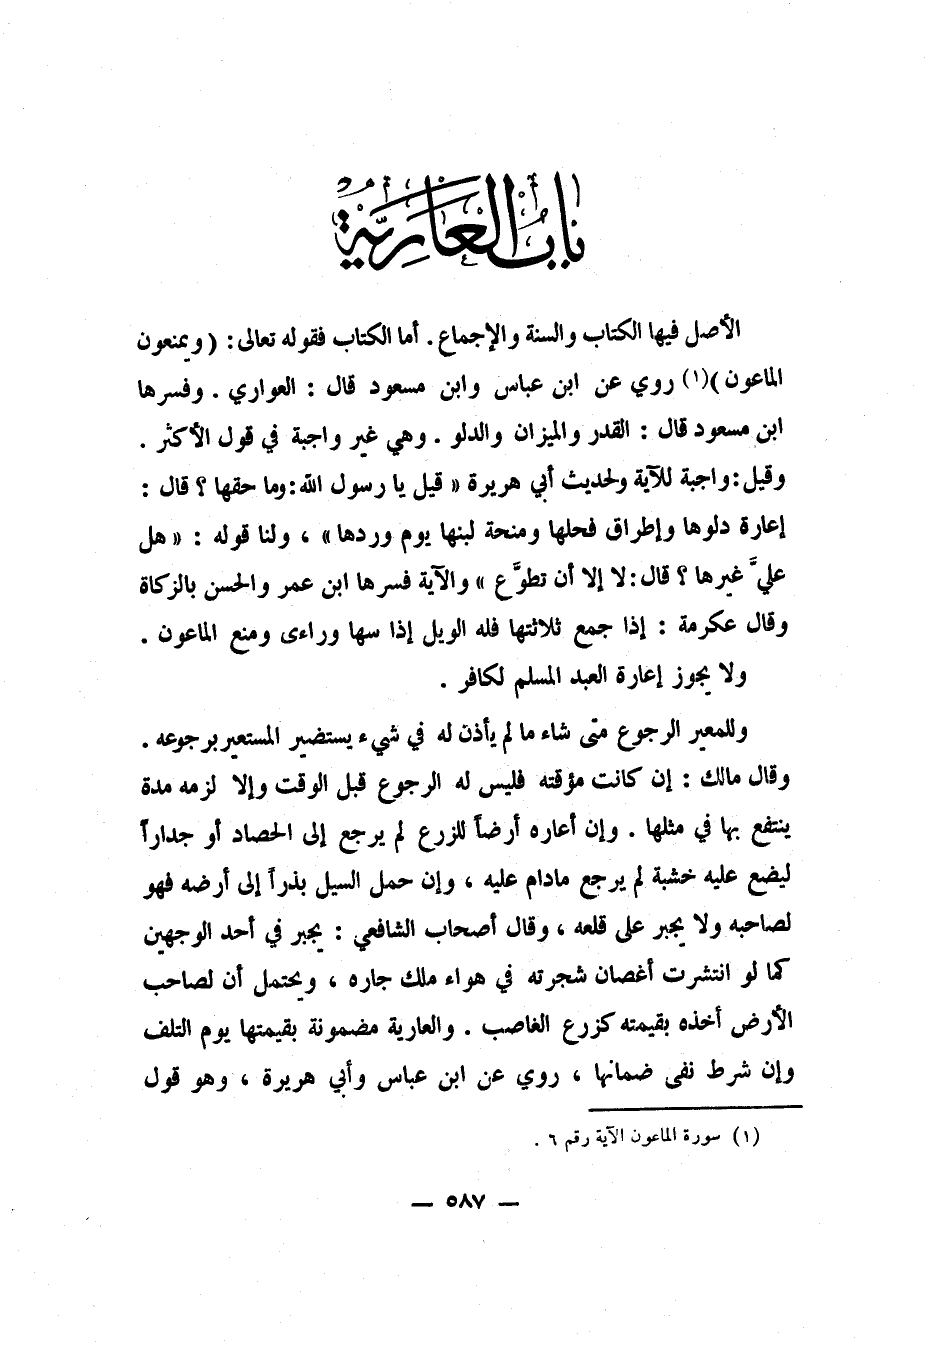 باب العارية
الأصل فيها الكتاب والسنة والإجماع. أما الكتاب فقوله تعالى: (ويمنعون
الماعون)(١) روي عن ابن عباس وابن مسعود قال : العواري . وفسرها
ابن مسعود قال : القدر والميزان والدلو . وهي غير واجبة في قول الأكثر .
وقيل:واجبة للآية ولحديث أبي هريرة « قيل يا رسول الله:وما حقها ؟ قال :
إعارة دلوها وإطراق فحلها ومنحة لبنها يوم وردها» ، ولنا قوله : « هل
عليَّ غيرها ؟ قال:لا إلا أن تطوَّع » والآية فسرها ابن عمر والحسن بالزكاة
وقال عكرمة : إذا جمع ثلاثتها فله الويل إذا سها وراءى ومنع الماعون .
ولا يجوز إعارة العبد المسلم لكافر .
وللمعير الرجوع متى شاء ما لم يأذن له في شيء يستضير المستعير برجوعه .
وقال مالك : إن كانت مؤقته فليس له الرجوع قبل الوقت وإلا لزمه مدة
ينتفع بها في مثلها . وإن أعاره أرضاً للزرع لم يرجع إلى الحصاد أو جداراً
ليضع عليه خشبة لم يرجع مادام عليه ، وإن حمل السيل بذراً إلى أرضه فهو
لصاحبه ولا يجبر على قلعه ، وقال أصحاب الشافعي : يجبر في أحد الوجهين
كما لو انتشرت أغصان شجرته في هواء ملك جاره ، ويحتمل أن لصاحب
الأرض أخذه بقيمته كزرع الغاصب . والعارية مضمونة بقيمتها يوم التلف
وإن شرط نفى ضمانها ، روي عن ابن عباس وأبي هريرة ، وهو قول
(١) سورة الماعون الآية رقم ٦ .
— ٥٨٧ —